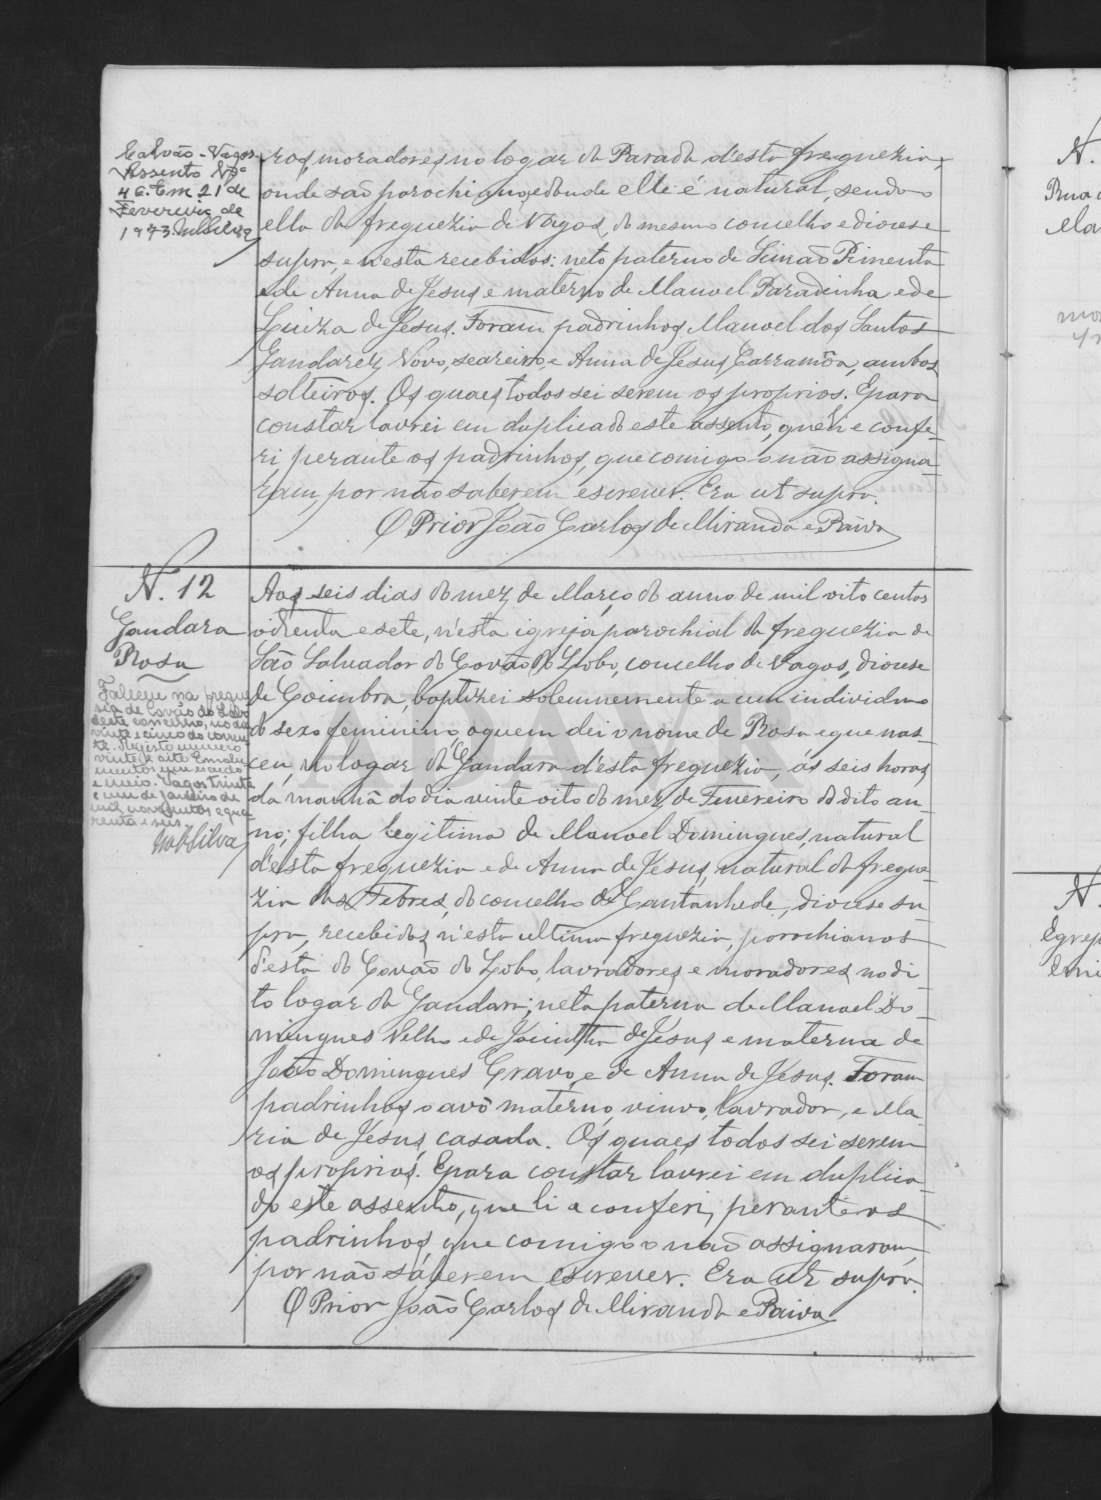 Calvão - Vagos
Assento Nº
46. Em 21 de
Fevereiro de
1973. MSilva
ros, moradores no logar da Parada d'esta freguezia,
onde são parochianos, e donde elle é natural, sendo
ella da freguezia de Vagos, do mesmo concelho e diocese
supra, e n'esta recebidos: neto paterno de Simão Pimenta
e de Anna de Jesus e materno de Manoel Paradinha e de
Luiza de Jesus. Foram padrinhos Manoel dos Santos
Gandarez Novo, seareiro, e Anna de Jesus Carramôa, ambos
solteiros. Os quaes todos sei serem os proprios. E para
constar lavrei em duplicado este assento, que li e confe-
ri, perante os padrinhos, que comigo o não assigna-
ram, por não saberem escrever. Era ut supra.
O Prior João Carlos de Miranda e Paiva
N. 12
Gandara
Rosa
Faleceu na fregue
sia de Covão do Lobo
deste concelho, no dia
vinte e cinco do corren
te. Registo numero
vinte e sete. Emolu
mentos um escudo
e meio. Vagos, trinta
e um de Janeiro de
mil novecentos e qua
renta e seis.
MSilva
Aos seis dias do mez de Março do anno de mil oito centos
oitenta e sete, n'esta igreja parochial da freguezia de
São Salvador do Covão do Lobo, concelho de Vagos, diocese
de Coimbra, baptizei solemnemente a um individuo
do sexo feminino a quem dei o nome de Rosa e que nas-
ceu, no logar da Gandara d'esta freguezia, ás seis horas
da manhã do dia vinte oito do mez de Fevereiro do dito an-
no; filha legitima de Manoel Domingues, natural
d'esta freguezia e de Anna de Jesus, natural da fregue-
zia das Febres, do concelho de Cantanhede, diocese su-
pra, recebidos n'esta ultima freguezia, parochianos
d'esta do Covão do Lobo, lavradores e moradores no di-
to logar da Gandara; neta paterna de Manoel Do-
mingues Velho e de Jacintha de Jesus e materna de
João Domingues Cravo, e de Anna de Jesus. Foram
padrinhos o avô materno, viuvo, lavrador, e Ma-
ria de Jesus, casada. Os quaes todos sei serem
os proprios. E para constar lavrei em duplica-
do este assento, que li e conferi, perante os
padrinhos, que comigo o não assignaram,
por não saberem escrever. Era ut supra.
O Prior João Carlos de Miranda e Paiva
N.
N.